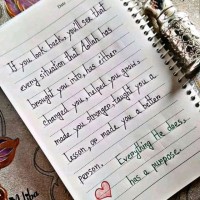 If you look back, you'll see that
every situation that Allah has
brought you into, has either
changed you, helped you grow,
made you stronger, taught you a
lesson, or made you a better
person. Everything He does,
has a purpose.